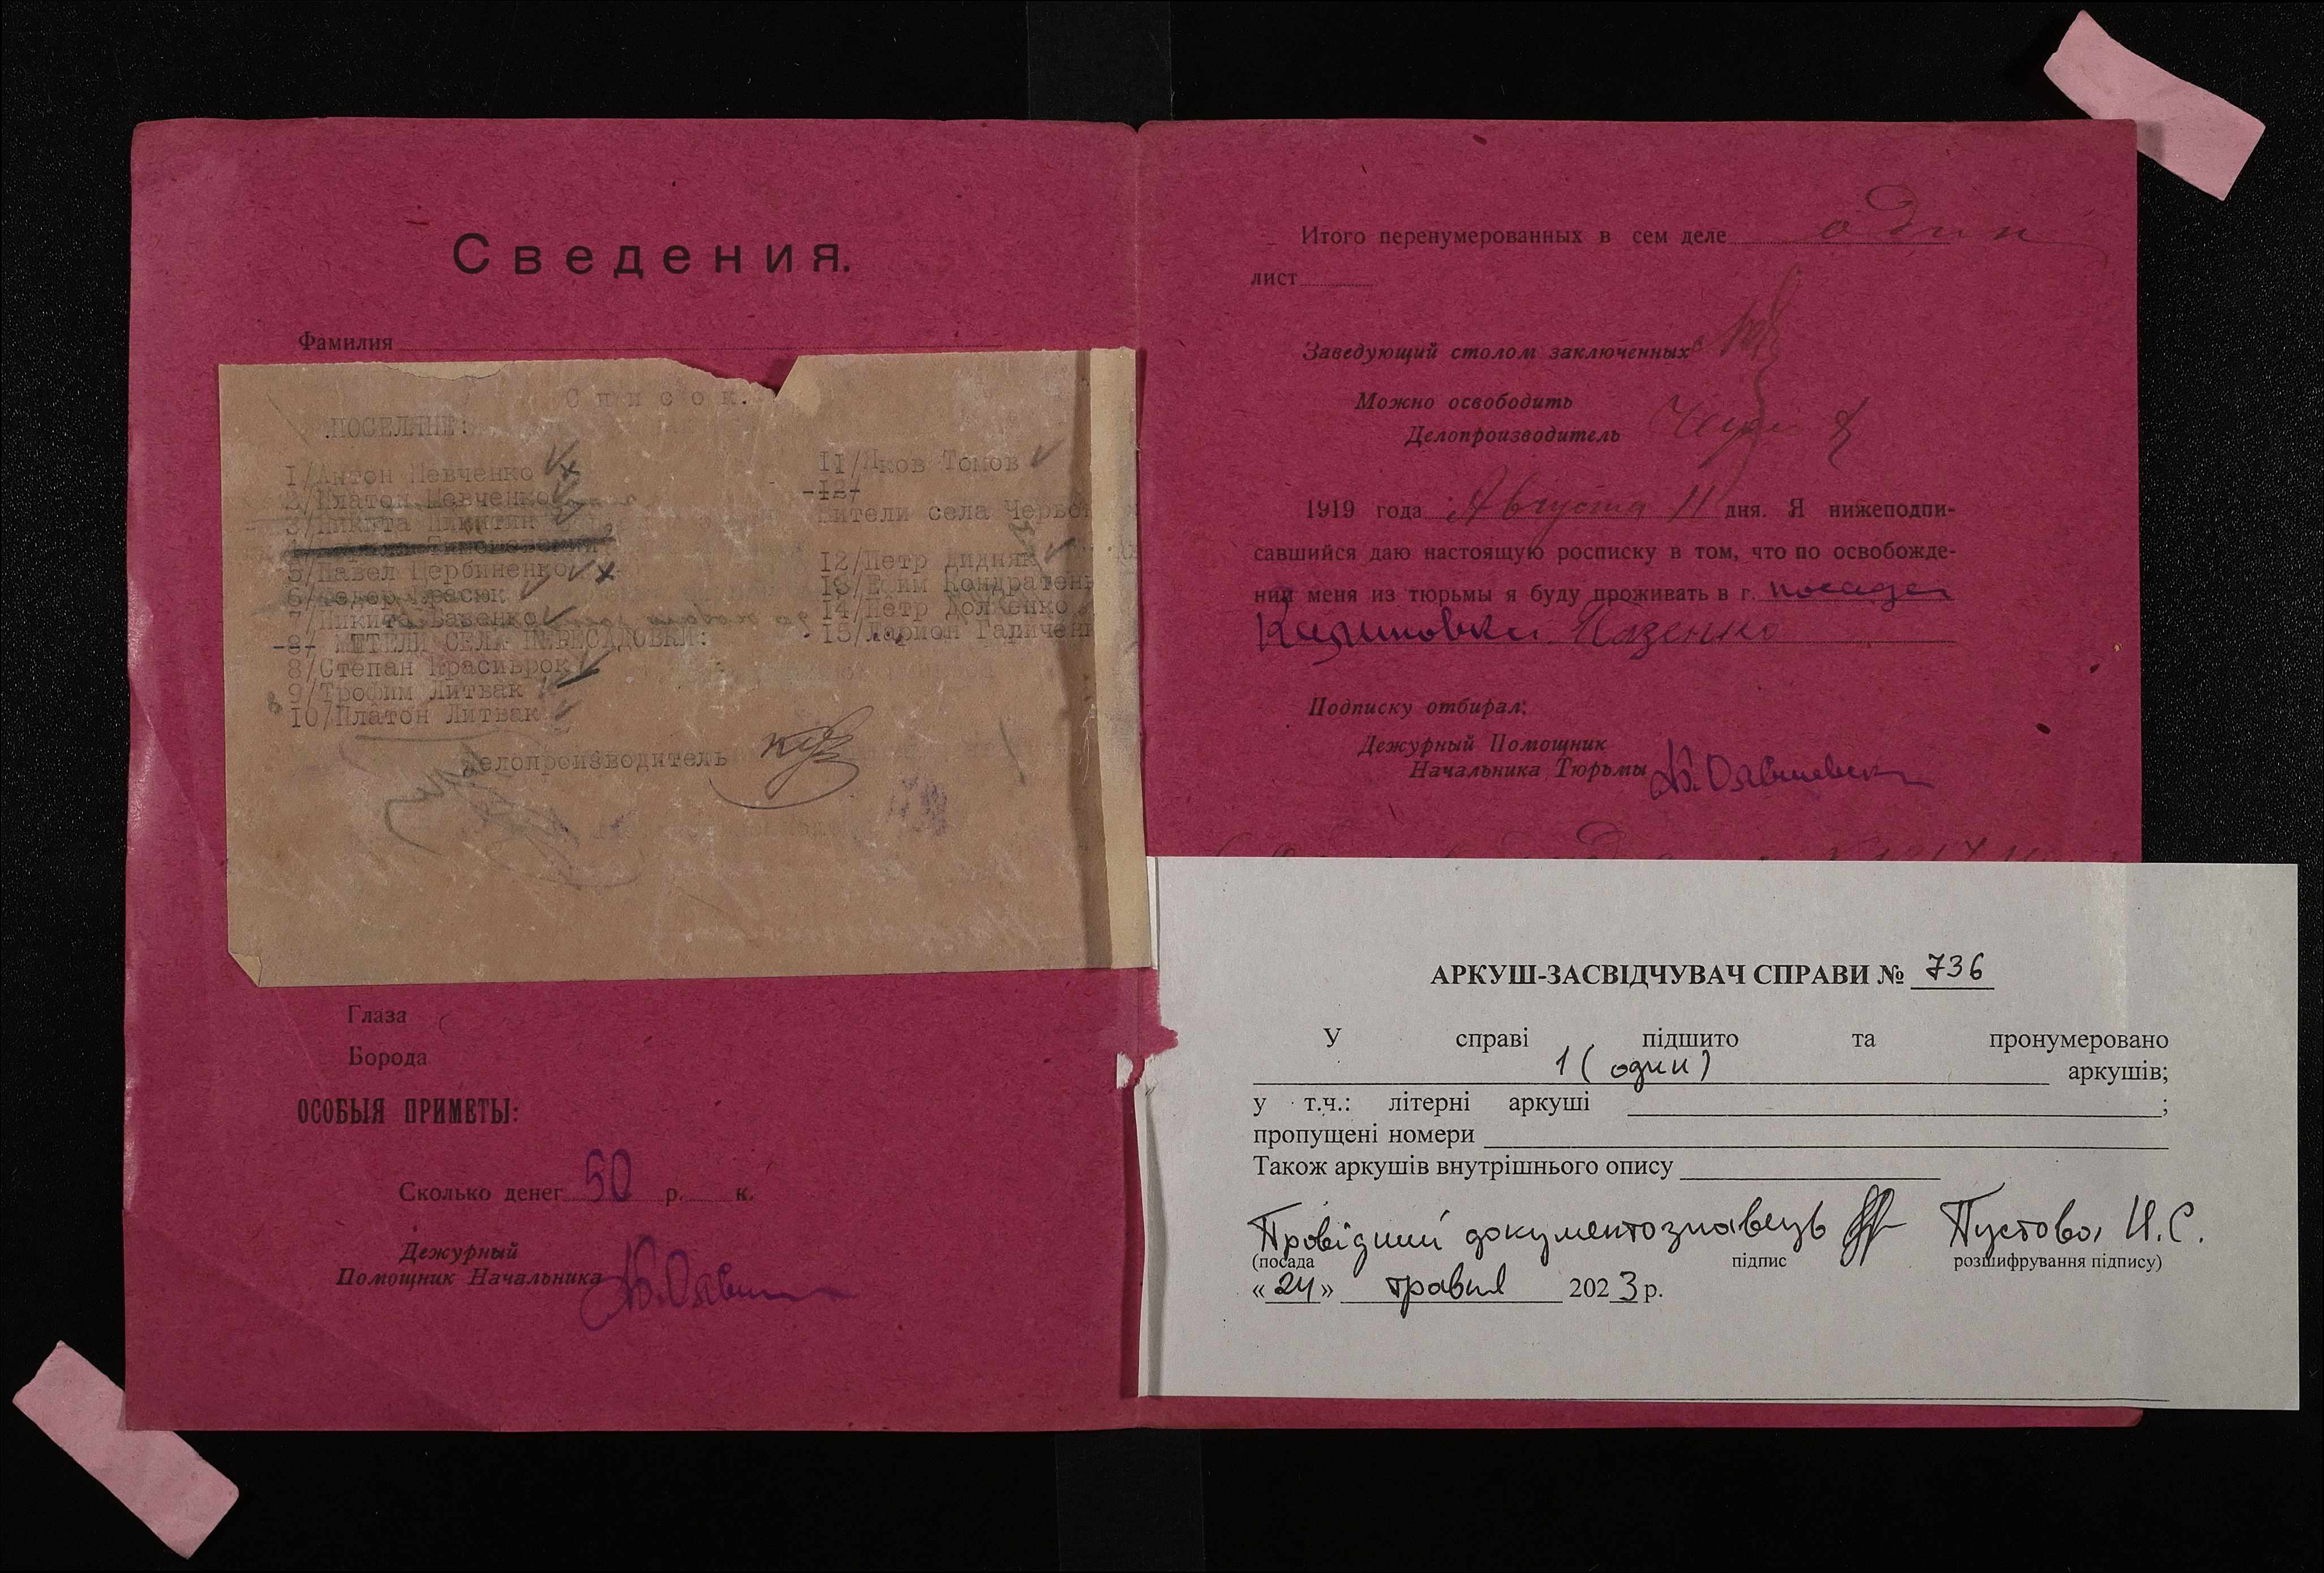 Сведения.
Фамилия
Список.
ПОСЕЛЯНЕ:
1/Антон Шевченко
2/Платон Шевченко
3/Никита Никитин
5/Павел Щербиненко
6/Федор Красюк
7/Никита Базенко
-8- ЖИТЕЛИ СЕЛА ПЕРЕСАДОВКИ:
8/Степан Красиврок
9/Трофим Литвак
10/Платон Литвак
11/Яков Томов
-12-
Жители села Черво
12/Петр Дидняк
13/Ефим Кондратень
14/Петр Долженко
15/Ларион Галичен
Делопроизводитель
Глаза
Борода
ОСОБЫЯ ПРИМЕТЫ:
Сколько денег 50 р. к.
Дежурный
Помощник Начальника
Итого перенумерованных в сем деле один
лист
Заведующий столом заключенных
Можно освободить
Делопроизводитель
1919 года Августа 11 дня. Я нижеподпи-
савшийся даю настоящую росписку в том, что по освобожде-
нии меня из тюрьмы я буду проживать в г. посаде
Калиновка. Пазенко
Подписку отбирал:
Дежурный Помощник
Начальника Тюрьмы
АРКУШ-ЗАСВІДЧУВАЧ СПРАВИ № 736
У справі підшито та пронумеровано
1 (один) аркушів;
у т.ч.: літерні аркуші ;
пропущені номери
Також аркушів внутрішнього опису
Провідний документознавець Пустова, И.С.
(посада підпис розшифрування підпису)
«24» травня 2023 р.